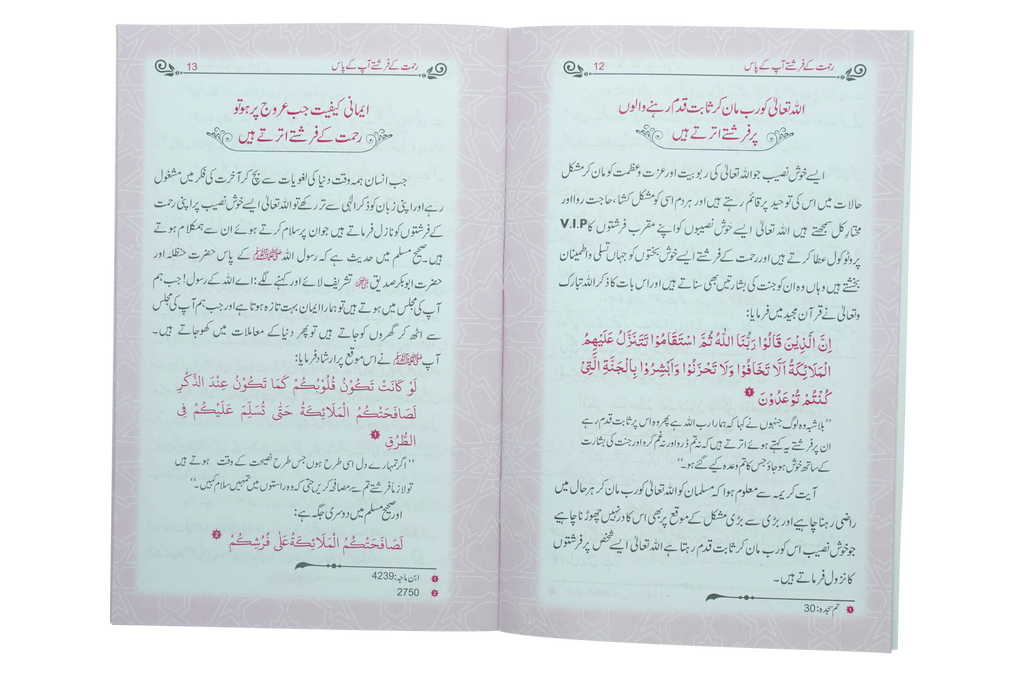 رحمت کے فرشتے آپ کے پاس
12
اللہ تعالیٰ کو رب مان کر ثابت قدم رہنے والوں
پر فرشتے اترتے ہیں
ایسے خوش نصیب جو اللہ تعالیٰ کی ربوبیت اور عزت و عظمت کو مان کر مشکل
حالات میں اس کی توحید پر قائم رہتے ہیں اور ہر دم اسی کو مشکل کشا، حاجت روا اور
مختار کل سمجھتے ہیں اللہ تعالیٰ ایسے خوش نصیبوں کو اپنے مقرب فرشتوں کا V.I.P
پروٹوکول عطا کرتے ہیں اور رحمت کے فرشتے ایسے خوش بختوں کو جہاں تسلی و اطمینان
بخشتے ہیں وہاں وہ ان کو جنت کی بشارتیں بھی سناتے ہیں اور اس بات کا ذکر اللہ تبارک
وتعالیٰ نے قرآن مجید میں فرمایا:
اِنَّ الَّذِيْنَ قَالُوْا رَبُّنَا اللّٰهُ ثُمَّ اسْتَقَامُوْا تَتَنَزَّلُ عَلَيْهِمُ
الْمَلَائِكَةُ اَلَّا تَخَافُوْا وَلَا تَحْزَنُوْا وَاَبْشِرُوْا بِالْجَنَّةِ الَّتِيْ
كُنْتُمْ تُوْعَدُوْنَ ❶
”بلاشبہ وہ لوگ جنہوں نے کہا کہ ہمارا رب اللہ ہے پھر وہ اس پر ثابت قدم رہے
ان پر فرشتے یہ کہتے ہوئے اترتے ہیں کہ نہ تم ڈرو اور نہ غم کرو اور جنت کی بشارت
کے ساتھ خوش ہو جاؤ جس کا تم وعدہ کیے گئے ہو۔“
آیت کریمہ سے معلوم ہوا کہ مسلمان کو اللہ تعالیٰ کو رب مان کر ہر حال میں
راضی رہنا چاہیے اور بڑی سے بڑی مشکل کے موقع پر بھی اس کا در نہیں چھوڑنا چاہیے
جو خوش نصیب اس کو رب مان کر ثابت قدم رہتا ہے اللہ تعالیٰ ایسے شخص پر فرشتوں
کا نزول فرماتے ہیں۔
❶ حم سجدہ: 30
رحمت کے فرشتے آپ کے پاس
13
ایمانی کیفیت جب عروج پر ہو تو
رحمت کے فرشتے اترتے ہیں
جب انسان ہمہ وقت دنیا کی لغویات سے بچ کر آخرت کی فکر میں مشغول
رہے اور اپنی زبان کو ذکر الٰہی سے تر رکھے تو اللہ تعالیٰ ایسے خوش نصیب پر اپنی رحمت
کے فرشتوں کو نازل فرماتے ہیں جو ان پر سلام کرتے ہوئے ان سے ہمکلام ہوتے
ہیں۔ صحیح مسلم میں حدیث ہے کہ رسول اللہ ﷺ کے پاس حضرت حنظلہ اور
حضرت ابوبکر صدیق تشریف لائے اور کہنے لگے: اے اللہ کے رسول! جب ہم
آپ کی مجلس میں ہوتے ہیں تو ہمارا ایمان بہت تازہ ہوتا ہے اور جب ہم آپ کی مجلس
سے اٹھ کر گھروں کو جاتے ہیں تو پھر دنیا کے معاملات میں کھو جاتے ہیں۔
آپ ﷺ نے اس موقع پر ارشاد فرمایا:
لَوْ كَانَتْ تَكُوْنُ قُلُوْبُكُمْ كَمَا تَكُوْنُ عِنْدَ الذِّكْرِ
لَصَافَحَتْكُمُ الْمَلَائِكَةُ حَتّٰى تُسَلِّمَ عَلَيْكُمْ فِى
الطُّرُقِ ❶
”اگر تمہارے دل اسی طرح ہوں جس طرح نصیحت کے وقت ہوتے ہیں
تو لازماً فرشتے تم سے مصافحہ کریں حتی کہ وہ راستوں میں تمہیں سلام کہیں۔“
اور صحیح مسلم میں دوسری جگہ ہے:
لَصَافَحَتْكُمُ الْمَلَائِكَةُ عَلٰى فُرُشِكُمْ ❷
❶ ابن ماجہ: 4239
❷ 2750